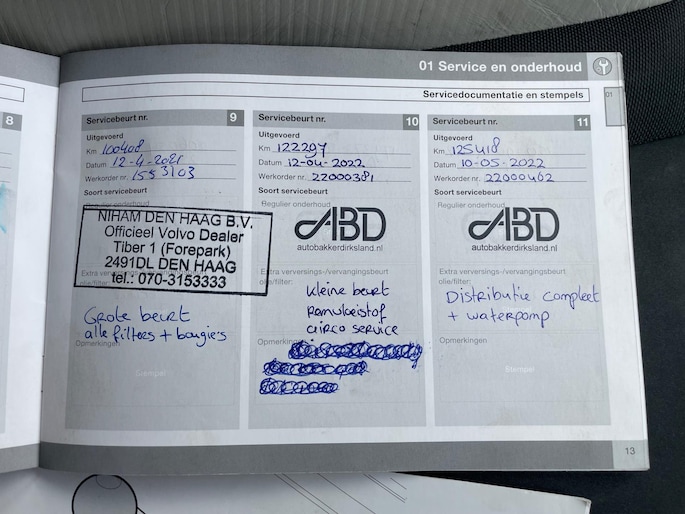 01 Service en onderhoud
01
Servicedocumentatie en stempels
8
Servicebeurt nr. 9
Uitgevoerd
Km 100408
Datum 12-4-2021
Werkorder nr. 1553103
Soort servicebeurt
Regulier onderhoud
NIHAM DEN HAAG B.V.
Officieel Volvo Dealer
Tiber 1 (Forepark)
2491DL DEN HAAG
tel.: 070-3153333
Extra verversings-/vervangingsbeurt
olie/filter:
Grote beurt
alle filters + bougies
Opmerkingen
Stempel
Servicebeurt nr. 10
Uitgevoerd
Km 122297
Datum 12-04-2022
Werkorder nr. 22000381
Soort servicebeurt
Regulier onderhoud
ABD
autobakkerdirksland.nl
Extra verversings-/vervangingsbeurt
olie/filter:
Kleine beurt
Remvloeistof
airco service
Opmerkingen
Servicebeurt nr. 11
Uitgevoerd
Km 125418
Datum 10-05-2022
Werkorder nr. 22000462
Soort servicebeurt
Regulier onderhoud
ABD
autobakkerdirksland.nl
Extra verversings-/vervangingsbeurt
olie/filter:
Distributie compleet
+ waterpomp
Opmerkingen
Stempel
13